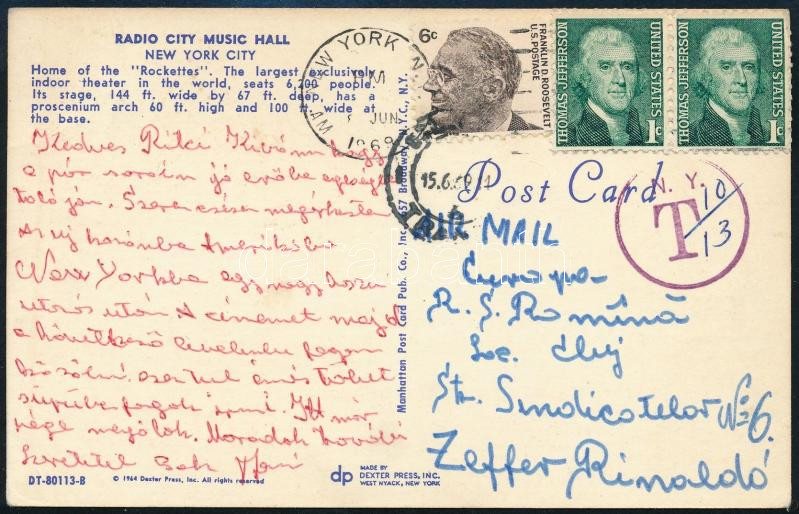 RADIO CITY MUSIC HALL
NEW YORK CITY
Home of the "Rockettes". The largest exclusively
indoor theater in the world, seats 6,200 people.
Its stage, 144 ft wide by 67 ft. deep, has a
proscenium arch 60 ft. high and 100 ft. wide at
the base.
Kedves Kívánom hogy
a pár soraim jó erőbe
Szerencsésen megérkeztem
Az új hazámba Amerikába
New Yorkba egy nagy hosszú
utazás után A címemet majd
a következő levelembe fogom
közölni
fogok írni. Itt már
Maradok
szeretettel
DT-80113-B
© 1964 Dexter Press, Inc. All rights reserved
Manhattan Post Card Pub. Co., Inc. 457 Broadway, N.Y.C., N.Y.
dp
MADE BY
DEXTER PRESS, INC.
WEST NYACK, NEW YORK
NEW YORK, N.
AM
JUN
1969
6c
FRANKLIN D. ROOSEVELT
U.S. POSTAGE
THOMAS JEFFERSON
1c
UNITED STATES
THOMAS JEFFERSON
1c
UNITED STATES
15.6.69
Post Card
N. Y.
T
10/13
AIR MAIL
Europa
R. S. Română
Loc. Cluj
Str. Sindicatelor No 6.
Zeffer Rinaldó